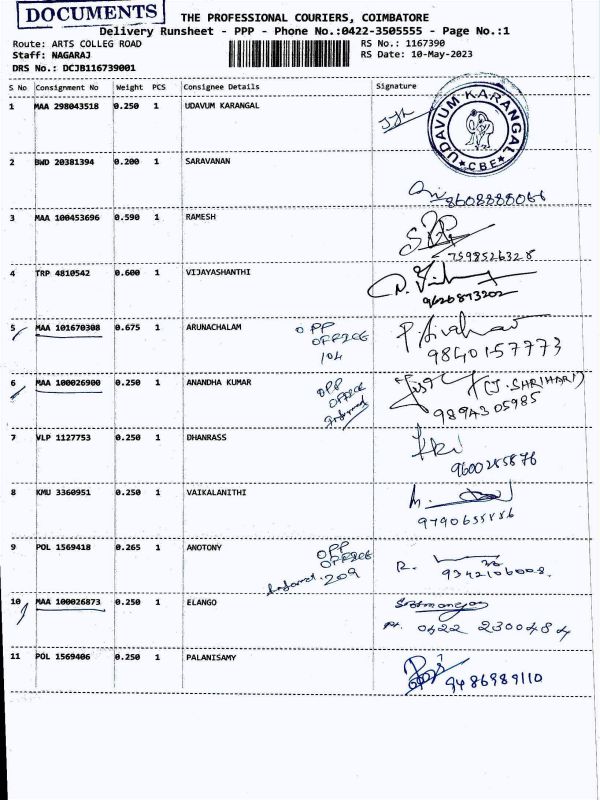 DOCUMENTS
THE PROFESSIONAL COURIERS, COIMBATORE
Delivery Runsheet - PPP - Phone No.:0422-3505555 - Page No.:1
Route: ARTS COLLEG ROAD RS No.: 1167390
Staff: NAGARAJ RS Date: 10-May-2023
DRS No.: DCJB116739001
S No Consignment No Weight PCS Consignee Details Signature
1 MAA 298043518 0.250 1 UDAVUM KARANGAL
UDAVUM KARANGAL
CBE
2 BWD 20381394 0.200 1 SARAVANAN
8608888066
3 MAA 100453696 0.590 1 RAMESH
7598526328
4 TRP 4810542 0.600 1 VIJAYASHANTHI
9626873202
5 MAA 101670308 0.675 1 ARUNACHALAM OPP
OFFICE
104
9840157773
6 MAA 100026900 0.250 1 ANANDHA KUMAR OPP
OFFICE
(J. SHRIHARI)
9894305985
7 VLP 1127753 0.250 1 DHANRASS
9600285876
8 KMU 3360951 0.250 1 VAIKALANITHI
9 POL 1569418 0.265 1 ANOTONY OPP
OFFICE
209
9342106008.
10 MAA 100026873 0.250 1 ELANGO
0422 2300484
11 POL 1569406 0.250 1 PALANISAMY
9486989110